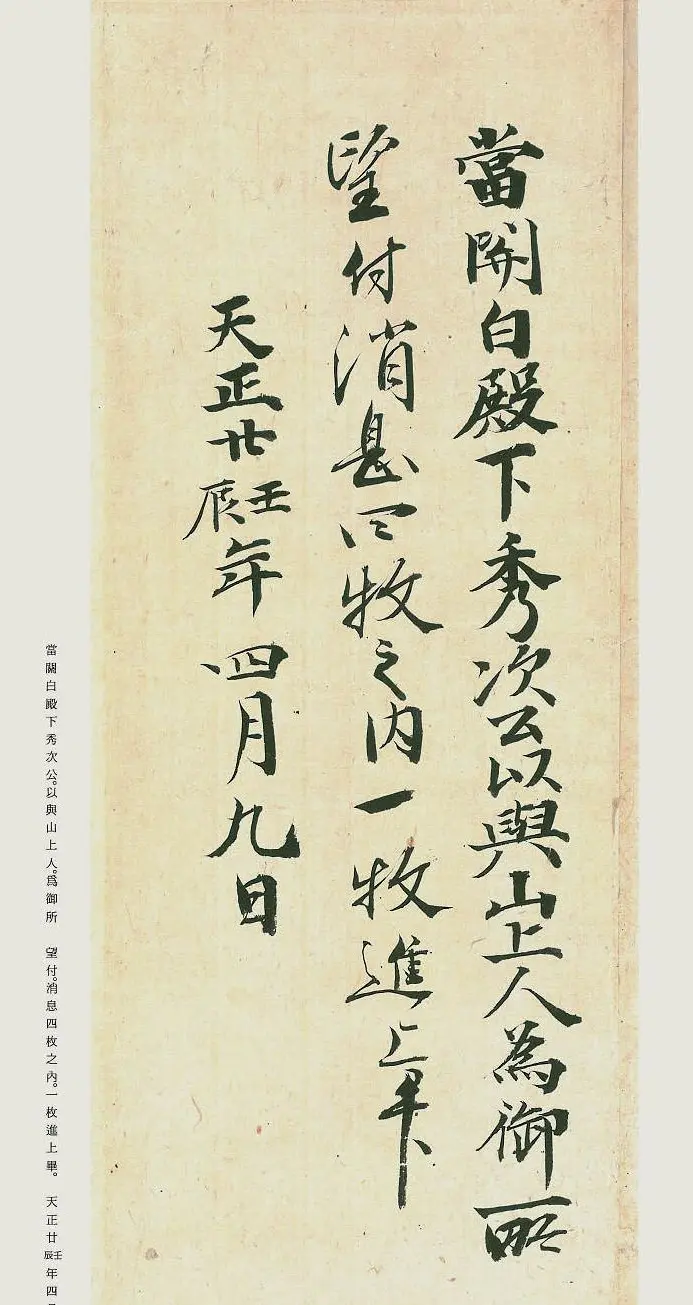 當関白殿下秀次公以與山上人為御所
望付消息四枚之内一枚進上畢
天正廿壬辰年四月九日
當關白殿下秀次公。以與山上人。爲御所　望付。消息四枚之內。一枚進上畢。　天正廿壬辰年四